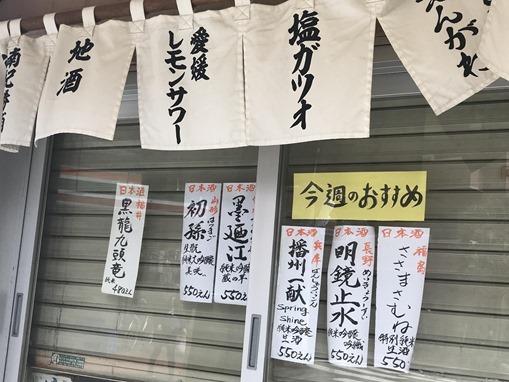 塩ガツオ
愛媛
レモンサワー
地酒
今週のおすすめ
日本酒 福島
ささまさむね
特別純米
生酒
550
日本酒 長野
めいきょうしすい
明鏡止水
純米吟醸
吟織
550えん
日本酒 兵庫
ばんしゅういっこん
播州一献
Spring
Shine
純米吟醸
生
550えん
日本酒
墨廼江
純米吟醸
蔵の華
550
日本酒 山形
はつまご
初孫
生酛
純米吟醸
美咲
550えん
日本酒 福井
黒龍九頭竜
純米
480えん